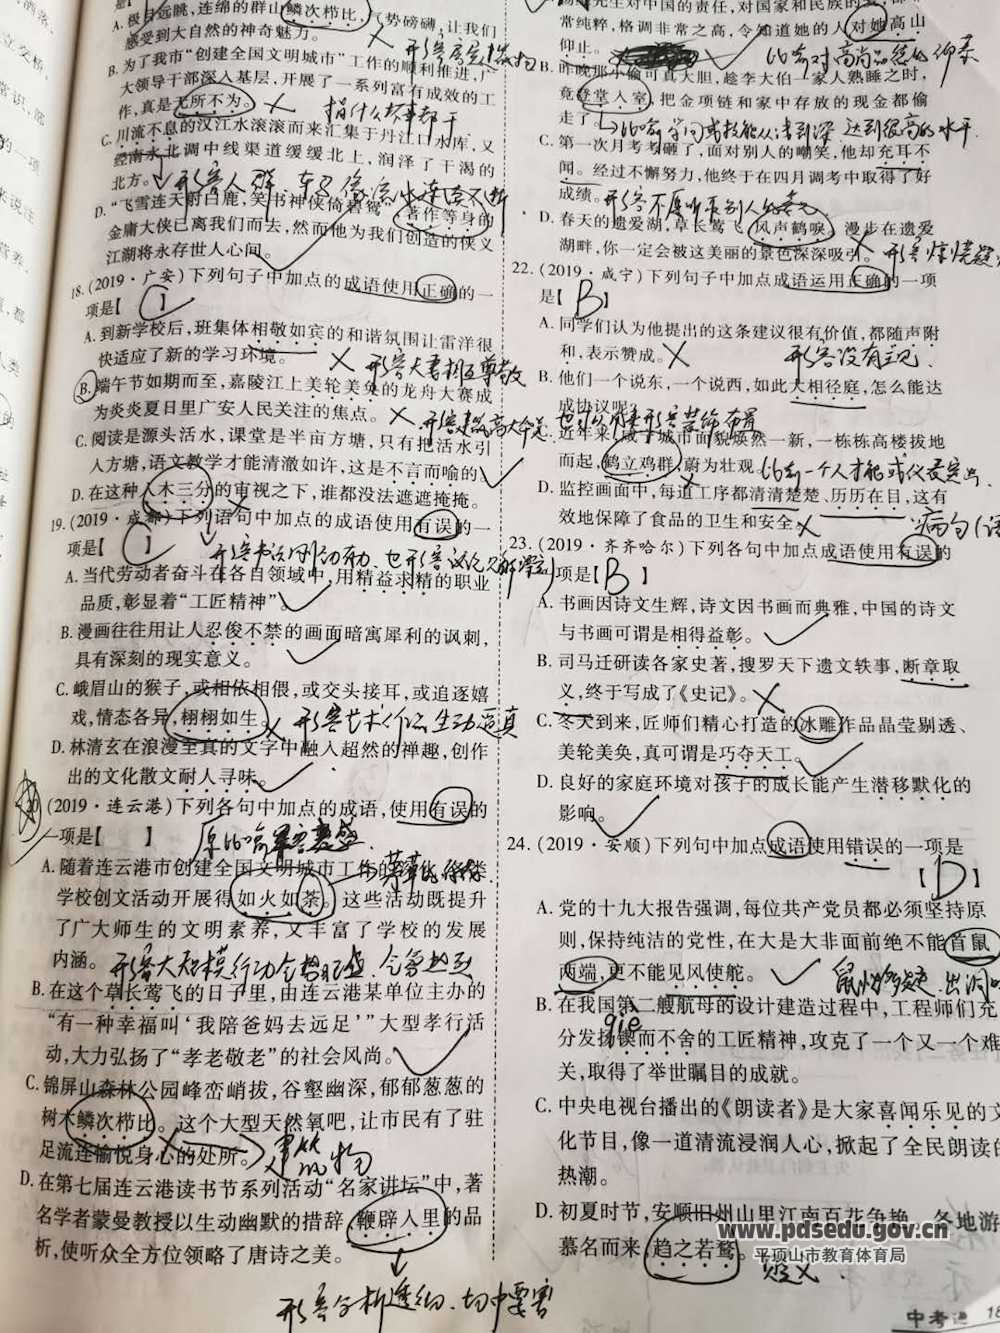 A. 极目远眺，连绵的群山鳞次栉比，气势磅礴，让我们
感受到大自然的神奇魅力。
B. 为了我市“创建全国文明城市”工作的顺利推进，广
大领导干部深入基层，开展了一系列富有成效的工
作，真是无所不为。
指什么坏事都干
C. 川流不息的汉江水滚滚而来汇集于丹江口水库，又
经南水北调中线渠道缓缓北上，润泽了干渴的
北方。
D. “飞雪连天射白鹿，笑书神侠倚碧鸳”，著作等身的
金庸大侠已离我们而去，然而他为我们创造的侠义
江湖将永存世人心间。
18. (2019·广安)下列句子中加点的成语使用正确的一
项是【C】
A. 到新学校后，班集体相敬如宾的和谐氛围让雷洋很
快适应了新的学习环境。
形容夫妻相互尊敬
B. 端午节如期而至，嘉陵江上美轮美奂的龙舟大赛成
为炎炎夏日里广安人民关注的焦点。
C. 阅读是源头活水，课堂是半亩方塘，只有把活水引
入方塘，语文教学才能清澈如许，这是不言而喻的
D. 在这种入木三分的审视之下，谁都没法遮遮掩掩。
19. (2019·成都)下列语句中加点的成语使用有误的一
项是【C】
A. 当代劳动者奋斗在各自领域中，用精益求精的职业
品质，彰显着“工匠精神”。
B. 漫画往往用让人忍俊不禁的画面暗寓犀利的讽刺，
具有深刻的现实意义。
C. 峨眉山的猴子，或相依相偎，或交头接耳，或追逐嬉
戏，情态各异，栩栩如生。
形容艺术作品生动逼真
D. 林清玄在浪漫至真的文字中融入超然的禅趣，创作
出的文化散文耐人寻味。
20 (2019·连云港)下列各句中加点的成语，使用有误的
一项是【 】
A. 随着连云港市创建全国文明城市工作的
学校创文活动开展得如火如荼。这些活动既提升
了广大师生的文明素养，又丰富了学校的发展
内涵。
形容大规模行动气势旺盛，气氛热烈
B. 在这个草长莺飞的日子里，由连云港某单位主办的
“有一种幸福叫‘我陪爸妈去远足’”大型孝行活
动，大力弘扬了“孝老敬老”的社会风尚。
C. 锦屏山森林公园峰峦峭拔，谷壑幽深，郁郁葱葱的
树木鳞次栉比。这个大型天然氧吧，让市民有了驻
足流连愉悦身心的处所。
建筑物
D. 在第七届连云港读书节系列活动“名家讲坛”中，著
名学者蒙曼教授以生动幽默的措辞、鞭辟入里的品
析，使听众全方位领略了唐诗之美。
形容分析透彻、切中要害
先生对中国的责任，对国家和民族的
常纯粹，格调非常之高，令知道她的人对她高山
仰止。
比喻对高尚品德的仰慕
B. 昨晚那小偷可真大胆，趁李大伯一家人熟睡之时，
竟登堂入室，把金项链和家中存放的现金都偷
走了
比喻学问或技能从浅到深，达到很高的水平
C. 第一次月考考砸了，面对别人的嘲笑，他却充耳不
闻。经过不懈努力，他终于在四月调考中取得了好
成绩。
形容不愿听取别人的意见
D. 春天的遗爱湖，草长莺飞，风声鹤唳，漫步在遗爱
湖畔，你一定会被这美丽的景色深深吸引。
22. (2019·咸宁)下列句子中加点成语运用正确的一项
是【B】
A. 同学们认为他提出的这条建议很有价值，都随声附
和，表示赞成。
形容没有主见
B. 他们一个说东，一个说西，如此大相径庭，怎么能达
成协议呢？
C. 近年来，咸宁城市面貌焕然一新，一栋栋高楼拔地
而起，鹤立鸡群，蔚为壮观。
D. 监控画面中，每道工序都清清楚楚、历历在目，这有
效地保障了食品的卫生和安全。
23. (2019·齐齐哈尔)下列各句中加点成语使用有误的
一项是【B】
A. 书画因诗文生辉，诗文因书画而典雅，中国的诗文
与书画可谓是相得益彰。
B. 司马迁研读各家史著，搜罗天下遗文轶事，断章取
义，终于写成了《史记》。
C. 冬天到来，匠师们精心打造的冰雕作品晶莹剔透、
美轮美奂，真可谓是巧夺天工。
D. 良好的家庭环境对孩子的成长能产生潜移默化的
影响。
24. (2019·安顺)下列句子中加点成语使用错误的一项是
【D】
A. 党的十九大报告强调，每位共产党员都必须坚持原
则，保持纯洁的党性，在大是大非面前绝不能首鼠
两端，更不能见风使舵。
B. 在我国第二艘航母的设计建造过程中，工程师们充
qie
分发扬锲而不舍的工匠精神，攻克了一个又一个难
关，取得了举世瞩目的成就。
C. 中央电视台播出的《朗读者》是大家喜闻乐见的文
化节目，像一道清流浸润人心，掀起了全民朗读的
热潮。
D. 初夏时节，安顺旧州山里江南百花争艳，各地游
慕名而来，趋之若鹜。
贬义
www.pdsedu.gov.cn
平顶山市教育体育局
中考通